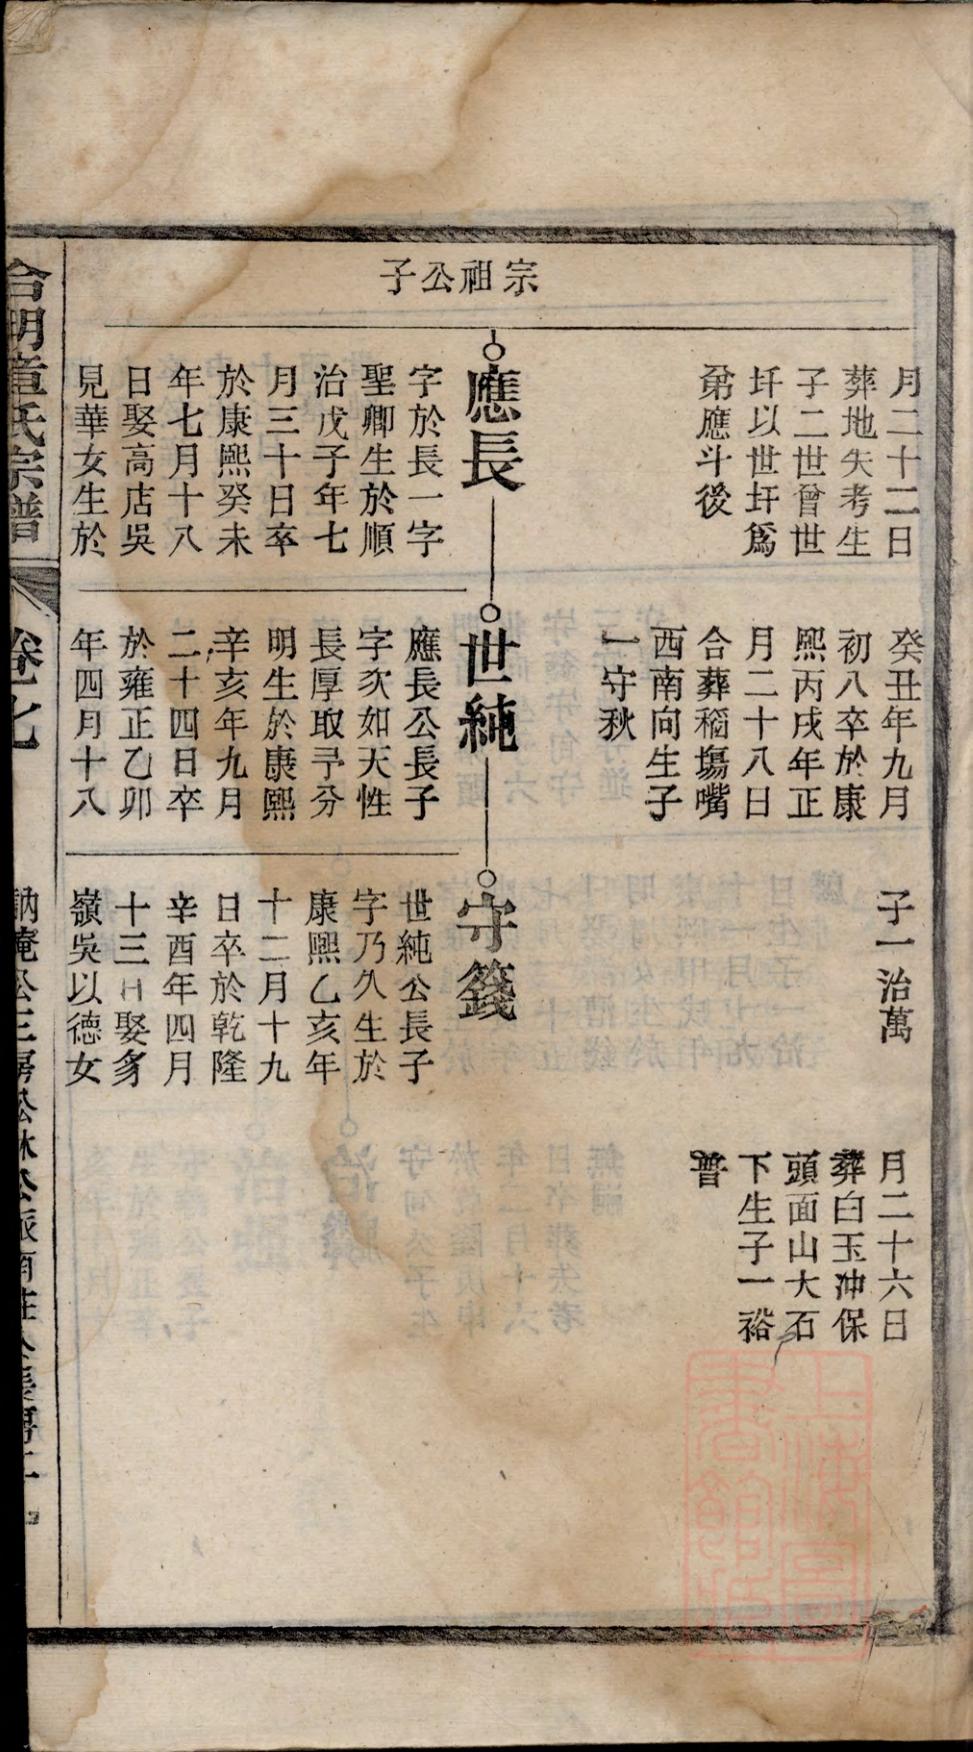 宗祖公子
月二十二日
葬地失考生
子二世曾世
圩以世圩爲
弟應斗後
應長
字於長一字
聖卿生於順
治戊子年七
月三十日卒
於康熙癸未
年七月十八
日娶高店吳
見華女生於
癸丑年九月
初八卒於康
熙丙戌年正
月二十八日
合葬稻場嘴
西南向生子
一守秋
世純
應長公長子
字次如天性
長厚取予分
明生於康熙
辛亥年九月
二十四日卒
於雍正乙卯
年四月十八
子一治萬
守籛
世純公長子
字乃久生於
康熙乙亥年
十二月十九
日卒於乾隆
辛酉年四月
十三日娶
嶺吳以德女
月二十六日
葬白玉冲保
頭面山大石
下生子一裕
普
合明童氏宗譜
卷七
上海圖書館藏